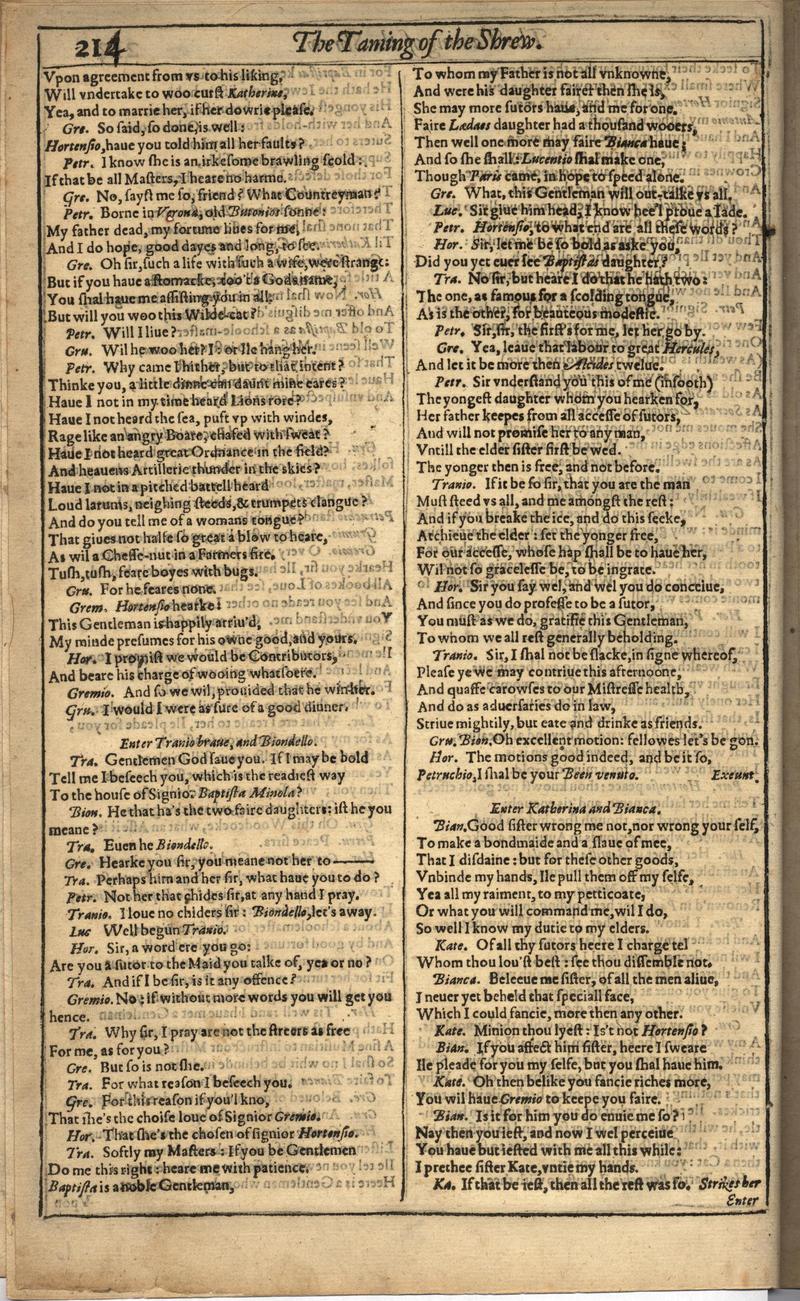 214
The Taming of the Shrew.
Vpon agreement from vs to his liking,
Will vndertake to woo curſt Katherine,
Yea, and to marrie her, if her dowrie pleaſe.
Gre. So ſaid, ſo done, is well:
Hortenſio, haue you told him all her faults?
Petr. I know ſhe is an irkeſome brawling ſcold:
If that be all Maſters, I heare no harme.
Gre. No, ſayſt me ſo, friend? What Countreyman?
Petr. Borne in Verona, old Butonios ſonne:
My father dead, my fortune liues for me,
And I do hope, good dayes and long, to ſee.
Gre. Oh ſir, ſuch a life with ſuch a wife, were ſtrange:
But if you haue a ſtomacke, too't a Gods name,
You ſhal haue me aſſiſting you in all.
But will you woo this Wilde-cat?
Petr. Will I liue?
Gru. Wil he woo her? I: or Ile hang her.
Petr. Why came I hither, but to that intent?
Thinke you, a little dinne can daunt mine eares?
Haue I not in my time heard Lions rore?
Haue I not heard the ſea, puft vp with windes,
Rage like an angry Boare, chafed with ſweat?
Haue I not heard great Ordnance in the field?
And heauens Artillerie thunder in the skies?
Haue I not in a pitched battell heard
Loud larums, neighing ſteeds, & trumpets clangue?
And do you tell me of a womans tongue?
That giues not halfe ſo great a blow to heare,
As wil a Cheſſe-nut in a Farmers fire.
Tuſh, tuſh, feare boyes with bugs.
Gru. For he feares none.
Grem. Hortenſio hearke:
This Gentleman is happily arriu'd,
My minde preſumes for his owne good, and yours.
Hor. I promiſt we would be Contributors,
And beare his charge of wooing whatſoere.
Gremio. And ſo we wil, prouided that he win her.
Gru. I would I were as ſure of a good dinner.
Enter Tranio braue, and Biondello.
Tra. Gentlemen God ſaue you. If I may be bold
Tell me I beſeech you, which is the readieſt way
To the houſe of Signior Baptiſta Minola?
Bion. He that ha's the two faire daughters: iſt he you
meane?
Tra. Euen he Biondello.
Gre. Hearke you ſir, you meane not her to——
Tra. Perhaps him and her ſir, what haue you to do?
Petr. Not her that chides ſir, at any hand I pray.
Tranio. I loue no chiders ſir: Biondello, let's away.
Luc Well begun Tranio.
Hor. Sir, a word ere you go:
Are you a ſutor to the Maid you talke of, yea or no?
Tra. And if I be ſir, is it any offence?
Gremio. No: if without more words you will get you
hence.
Tra. Why ſir, I pray are not the ſtreets as free
For me, as for you?
Gre. But ſo is not ſhe.
Tra. For what reaſon I beſeech you.
Gre. For this reaſon if you'l kno,
That ſhe's the choiſe loue of Signior Gremio.
Hor. That ſhe's the choſen of ſignior Hortenſio.
Tra. Softly my Maſters: If you be Gentlemen
Do me this right: heare me with patience.
Baptiſta is a noble Gentleman,
To whom my Father is not all vnknowne,
And were his daughter fairer then ſhe is,
She may more ſutors haue, and me for one.
Faire Lædaes daughter had a thouſand wooers,
Then well one more may faire Bianca haue;
And ſo ſhe ſhall: Lucentio ſhal make one,
Though Paris came, in hope to ſpeed alone.
Gre. What, this Gentleman will out-talke vs all.
Luc. Sir giue him head, I know hee'l proue a Iade.
Petr. Hortenſio, to what end are all theſe words?
Hor. Sir, let me be ſo bold as aske you,
Did you yet euer ſee Baptiſtas daughter?
Tra. No ſir, but heare I do that he hath two:
The one, as famous for a ſcolding tongue,
As is the other, for beauteous modeſtie.
Petr. Sir, ſir, the firſt's for me, let her go by.
Gre. Yea, leaue that labour to great Hercules,
And let it be more then Alcides twelue.
Petr. Sir vnderſtand you this of me (inſooth)
The yongeſt daughter whom you hearken for,
Her father keepes from all acceſſe of ſutors,
And will not promiſe her to any man,
Vntill the elder ſiſter firſt be wed.
The yonger then is free, and not before.
Tranio. If it be ſo ſir, that you are the man
Muſt ſteed vs all, and me amongſt the reſt:
And if you breake the ice, and do this ſeeke,
Atchieue the elder: ſet the yonger free,
For our acceſſe, whoſe hap ſhall be to haue her,
Wil not ſo graceleſſe be, to be ingrate.
Hor. Sir you ſay wel, and wel you do conceiue,
And ſince you do profeſſe to be a ſutor,
You muſt as we do, gratifie this Gentleman,
To whom we all reſt generally beholding.
Tranio. Sir, I ſhal not be ſlacke, in ſigne whereof,
Pleaſe ye we may contriue this afternoone,
And quaffe carowſes to our Miſtreſſe health,
And do as aduerſaries do in law,
Striue mightily, but eate and drinke as friends.
Gru. Bion. Oh excellent motion: fellowes let's be gon.
Hor. The motions good indeed, and be it ſo,
Petruchio, I ſhal be your Been venuto. Exeunt.
Enter Katherina and Bianca.
Bian. Good ſiſter wrong me not, nor wrong your ſelf,
To make a bondmaide and a ſlaue of mee,
That I diſdaine: but for theſe other goods,
Vnbinde my hands, Ile pull them off my ſelfe,
Yea all my raiment, to my petticoate,
Or what you will command me, wil I do,
So well I know my dutie to my elders.
Kate. Of all thy ſutors heere I charge tel
Whom thou lou'ſt beſt: ſee thou diſſemble not.
Bianca. Beleeue me ſiſter, of all the men aliue,
I neuer yet beheld that ſpeciall face,
Which I could fancie, more then any other.
Kate. Minion thou lyeſt: Is't not Hortenſio?
Bian. If you affect him ſiſter, heere I ſweare
Ile pleade for you my ſelfe, but you ſhal haue him.
Kate. Oh then belike you fancie riches more,
You wil haue Gremio to keepe you faire.
Bian. Is it for him you do enuie me ſo?
Nay then you ieſt, and now I wel perceiue
You haue but ieſted with me all this while:
I prethee ſiſter Kate, vntie my hands.
Ka. If that be ieſt, then all the reſt was ſo. Strikes her
Enter